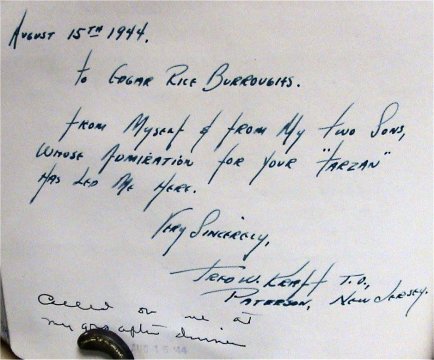 August 15th 1944.
to Edgar Rice Burroughs.
From Myself & from My two Sons,
whose Admiration for Your "Tarzan"
Has Led Me Here.
Very Sincerely,
Fred W. Kraft T.O.,
Paterson, New Jersey.
Called on me at
my after dinner
15 '44